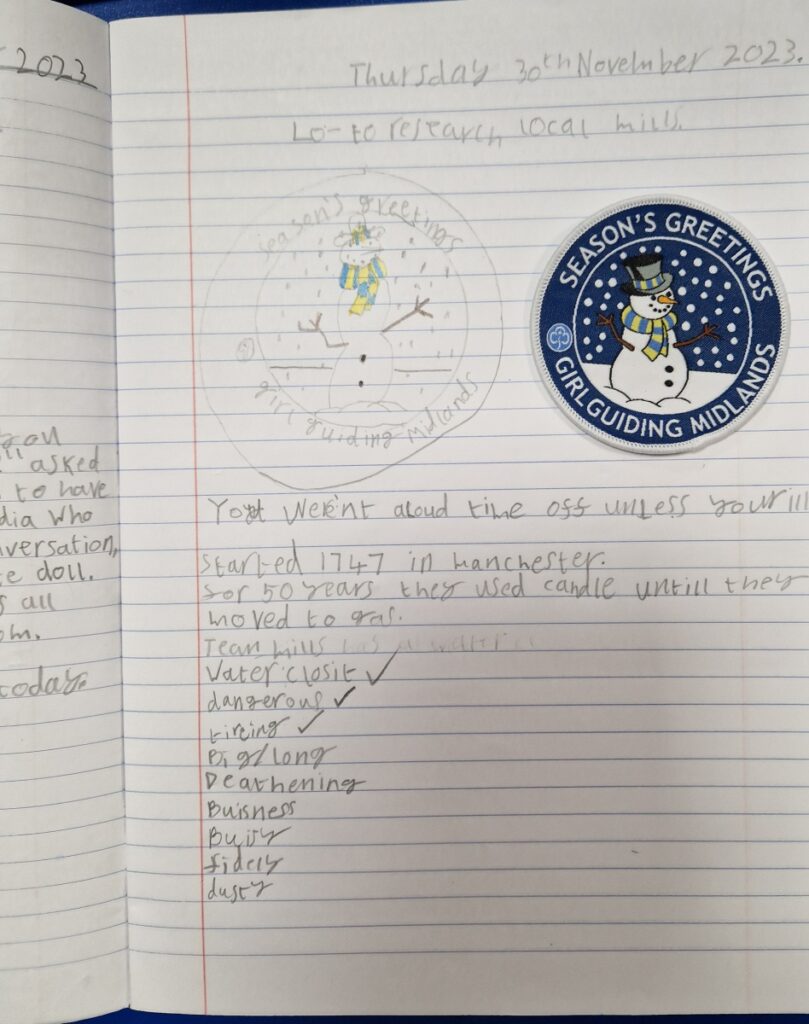 2023
Thursday 30th November 2023.
Lo- to research local mills.
season's greetings
girl guiding midlands
SEASON'S GREETINGS
GIRLGUIDING MIDLANDS
asked
to have
dia who
nversation,
e doll.
s all
om.
today.
You weren't aloud time off unless your ill
Started 1747 in manchester.
for 50 years they used candle untill they
moved to gas.
Tean mills has a water
Water closit ✓
dangerous ✓
tireing ✓
Big/Long
Deathening
Buisness
Buisy
dusty